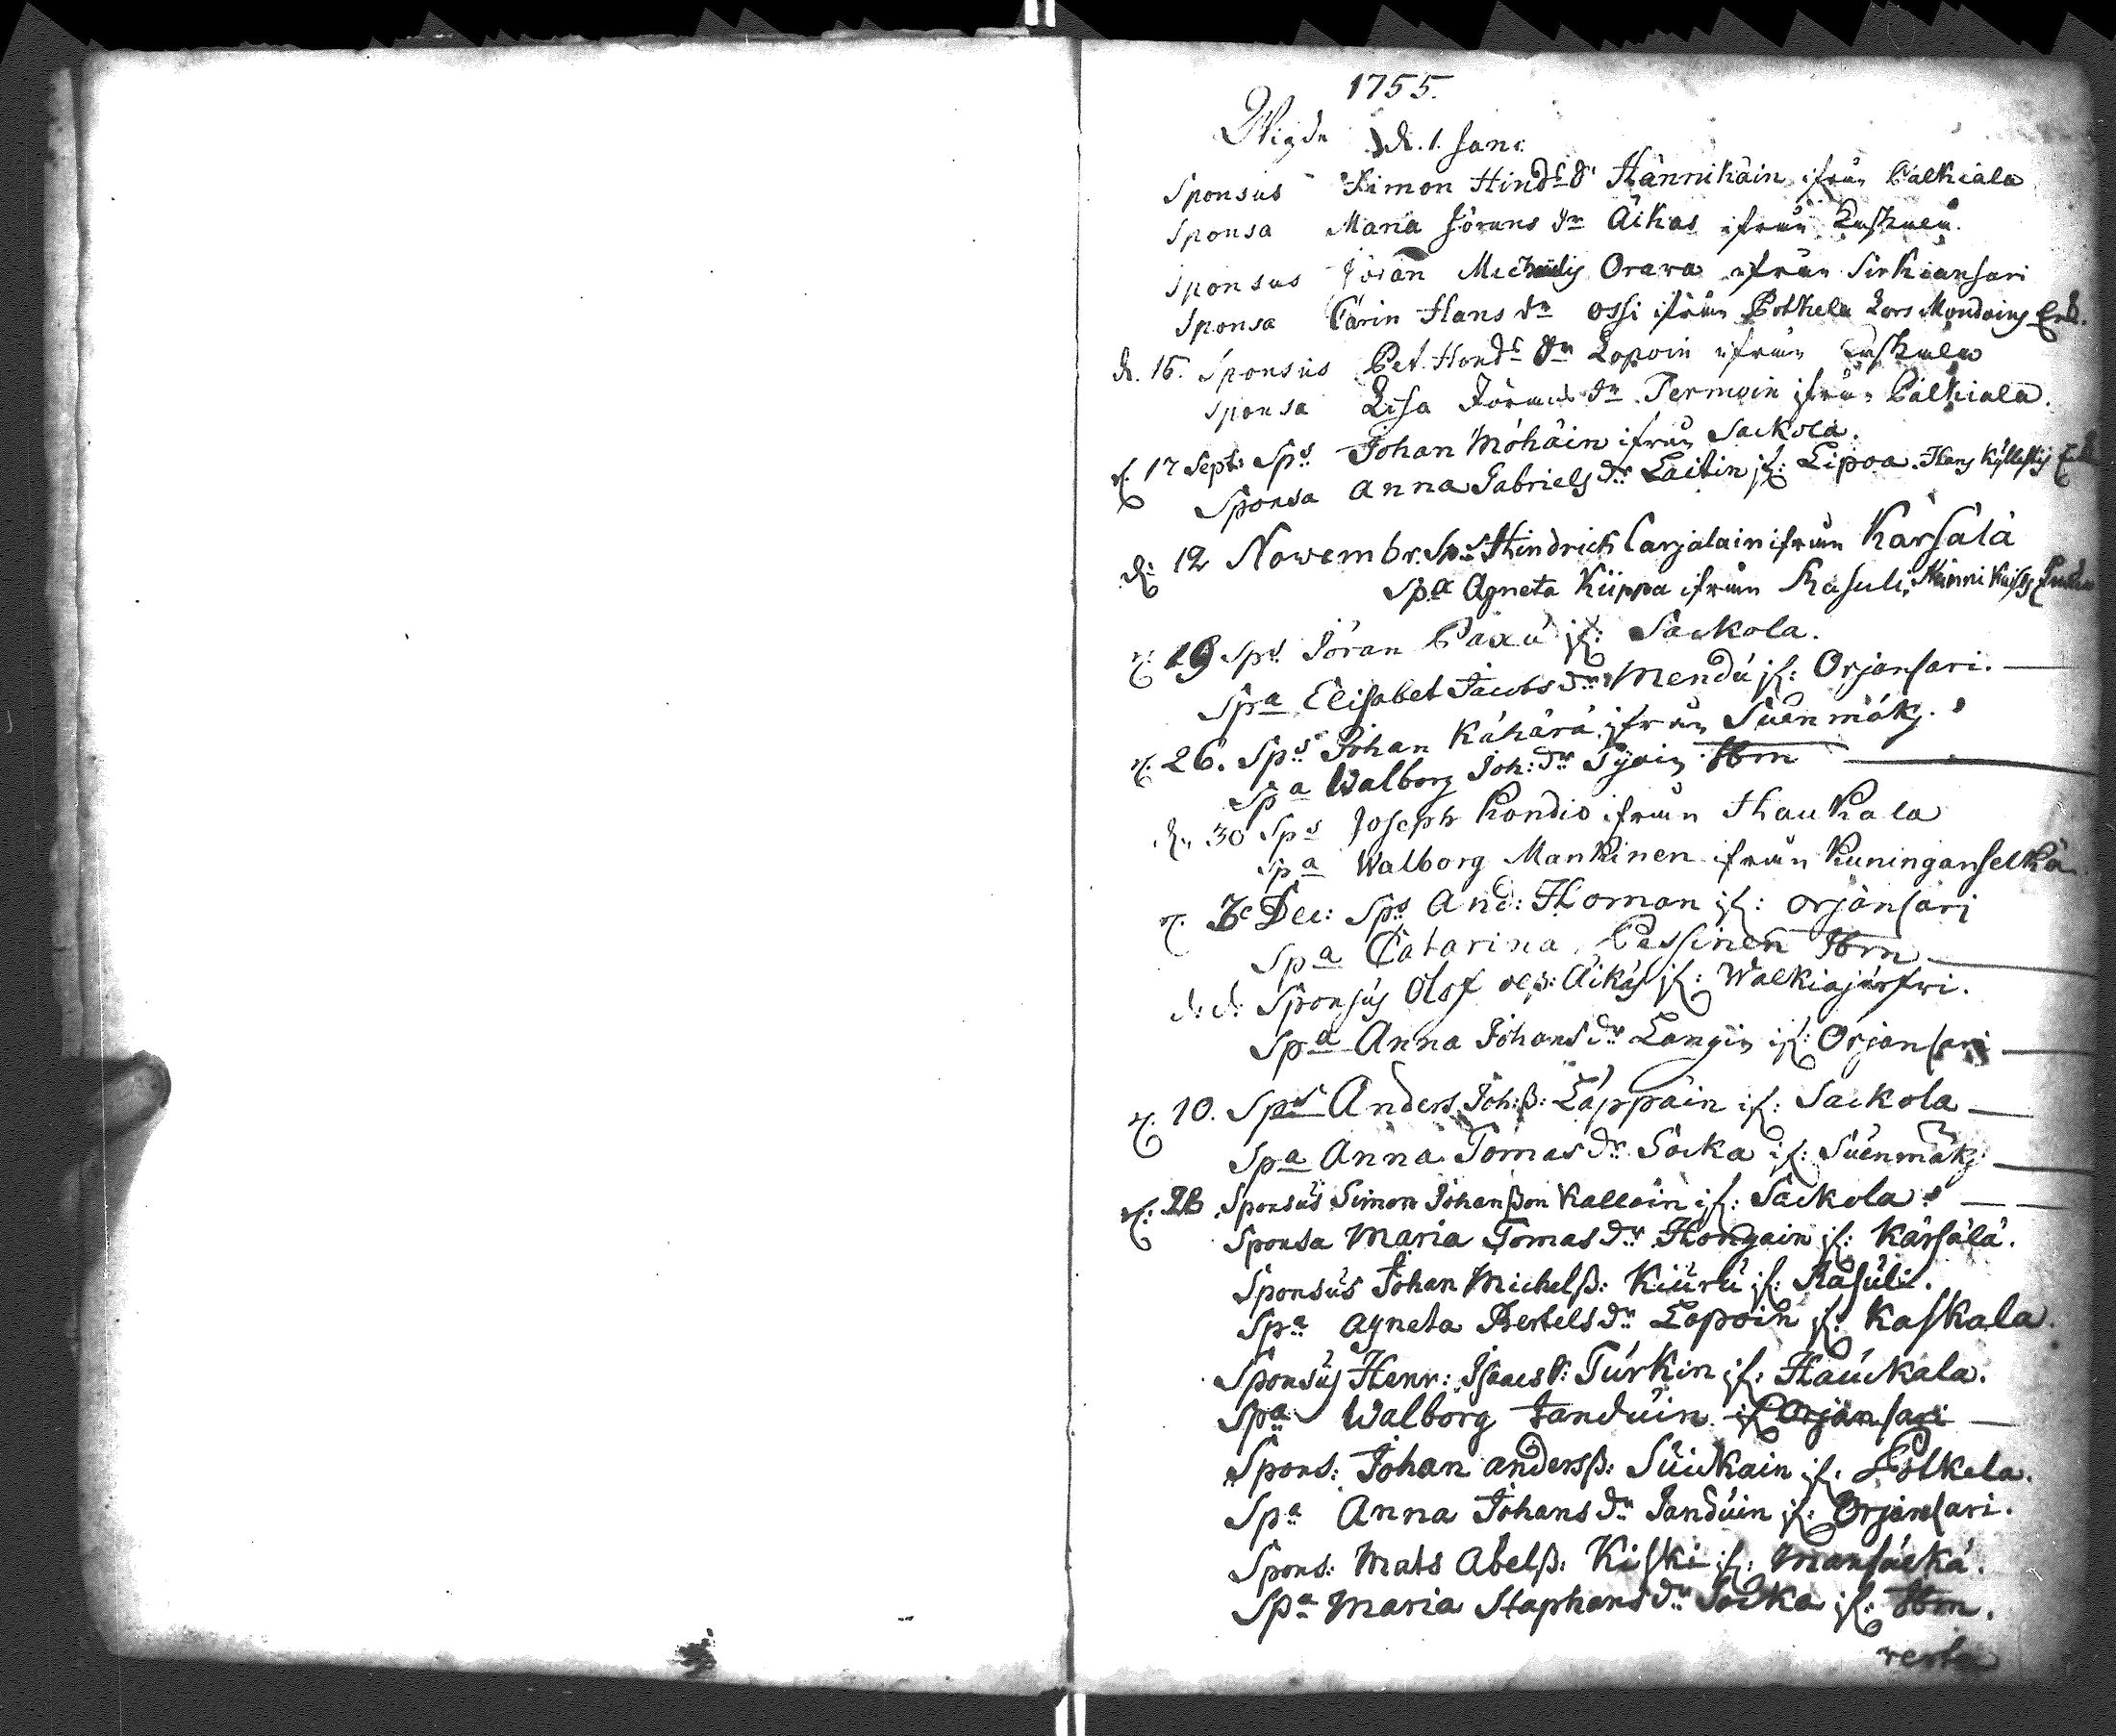 1755.
Wigda d. 1. Jan:
Sponsus Simon Hind: Hännikäin ifrån Pälkiälä
Sponsa Maria Jörans dr Äikas ifrån
Sponsus Jöran Michaelis Orava ifrån Sirkiansari
Sponsa Carin Hans dr Ossi ifrån Potkela Lars Mondoins Enk.
d. 15. Sponsus Pet. Lopoin ifrån
Sponsa Lisa Jörans dr Termoin ifrån Pälkiälä.
d. 17 Sept: Sps Johan Möhäin ifrån Sackola.
Sponsa Anna Gabriels dr Laitin if: Lipoa. Hans
d: 12 Novembr. Sps Hindrich Carjalain ifrån Kärsälä
Spa Agneta Kiippa ifrån Rasuli,
d. 19 Sps Jöran Paxu if: Sackola.
Spa Elisabet Jacobs dr Mendu if: Orjansari.
d. 26. Sps Johan Kähärä ifrån Suenmäki.
Spa Walborg Joh: dr Ibm
d. 30 Sps Joseph Kondio ifrån Haukala
Spa Walborg Mankinen ifrån Kuninganselkä
d. Dec: Sps And: Homan if: Orjansari
Spa Catarina Pessinen Ibm
d: d: Sponsus Olof olß: Äikäs if: Walkiajärfwi.
Spa Anna Johans dr Langin if: Orjansari
d. 10. Sps Anders Joh:ß: Läppäin if: Sackola
Spa Anna Tomas dr Socka if: Suenmäki
d. 28 Sponsus Simon Johanßon Kalloin if: Sackola.
Sponsa Maria Tomas dr Hongain if: Kärsälä.
Sponsus Johan Michelß: Kiuru if: Rasuli.
Spa Agneta Bertels dr Lopoin if: Kaskala.
Sponsus Henr: Isaacs: Turkin if: Hauckala.
Spa Walborg Tanduin if Orjansari
Spons: Johan andersß: Suickain if. Potkela.
Spa Anna Johans dr Tanduin if: Orjansari.
Spons: Mats Abelß: Kiski if: Mansicka.
Spa Maria Staphans dr Socka if: Ibm.
verta